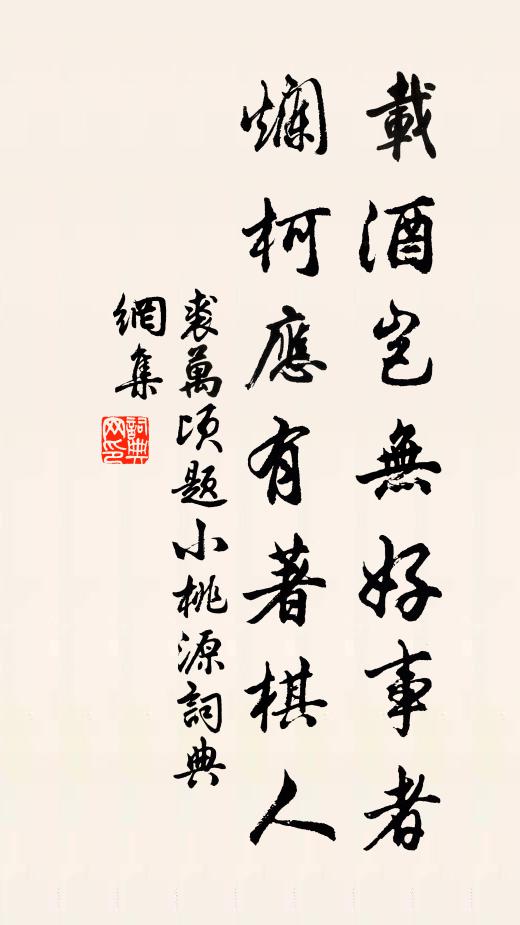 載酒豈無好事者
爛柯應有著棋人
裘萬頃題小桃源詞典
網集
詞典網印